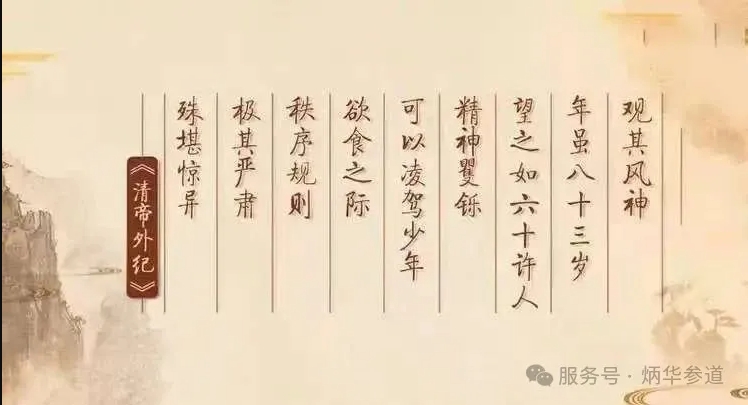 观其风神
年虽八十三岁
望之如六十许人
精神矍铄
可以凌驾少年
欲食之际
秩序规则
极其严肃
殊堪惊异
《清帝外纪》
服务号·炳华参道